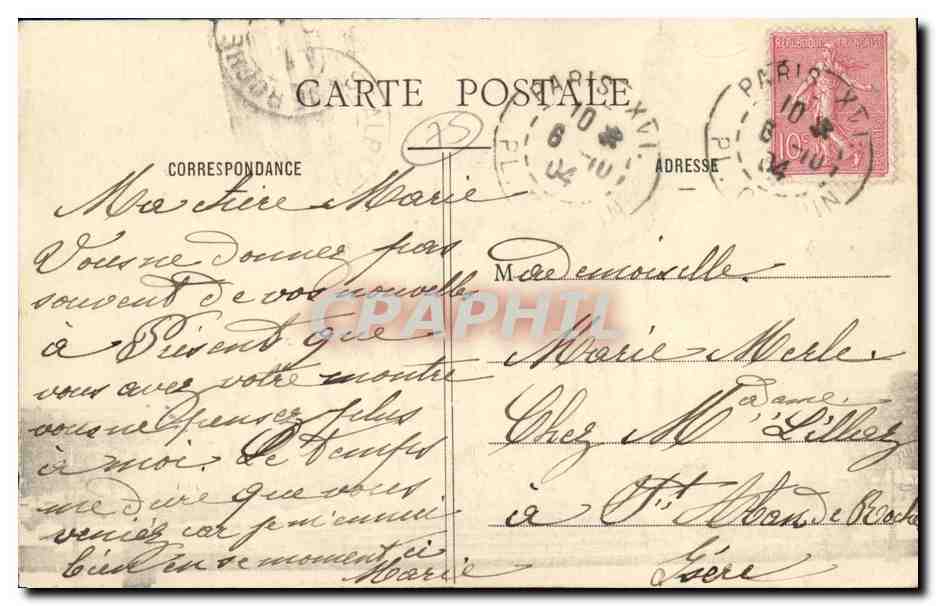 CARTE POSTALE
75
CORRESPONDANCE
ADRESSE
RÉPUBLIQUE FRANÇAISE
10
PARIS XVI
PL.
10
6 10
04
PARIS XVI
PL.
10
6 10
04
CPAPHIL
Ma Marie
Vous ne donnez pas
souvent de vos nouvelles
à Présent que
vous avez votre montre
vous ne pensez plus
à moi. Le temps
me dure que vous
veniez car je m'ennui
bien en se moment ci
Marie
Mademoiselle.
Marie Merle.
Chez Madame
à St de Roche
Isère